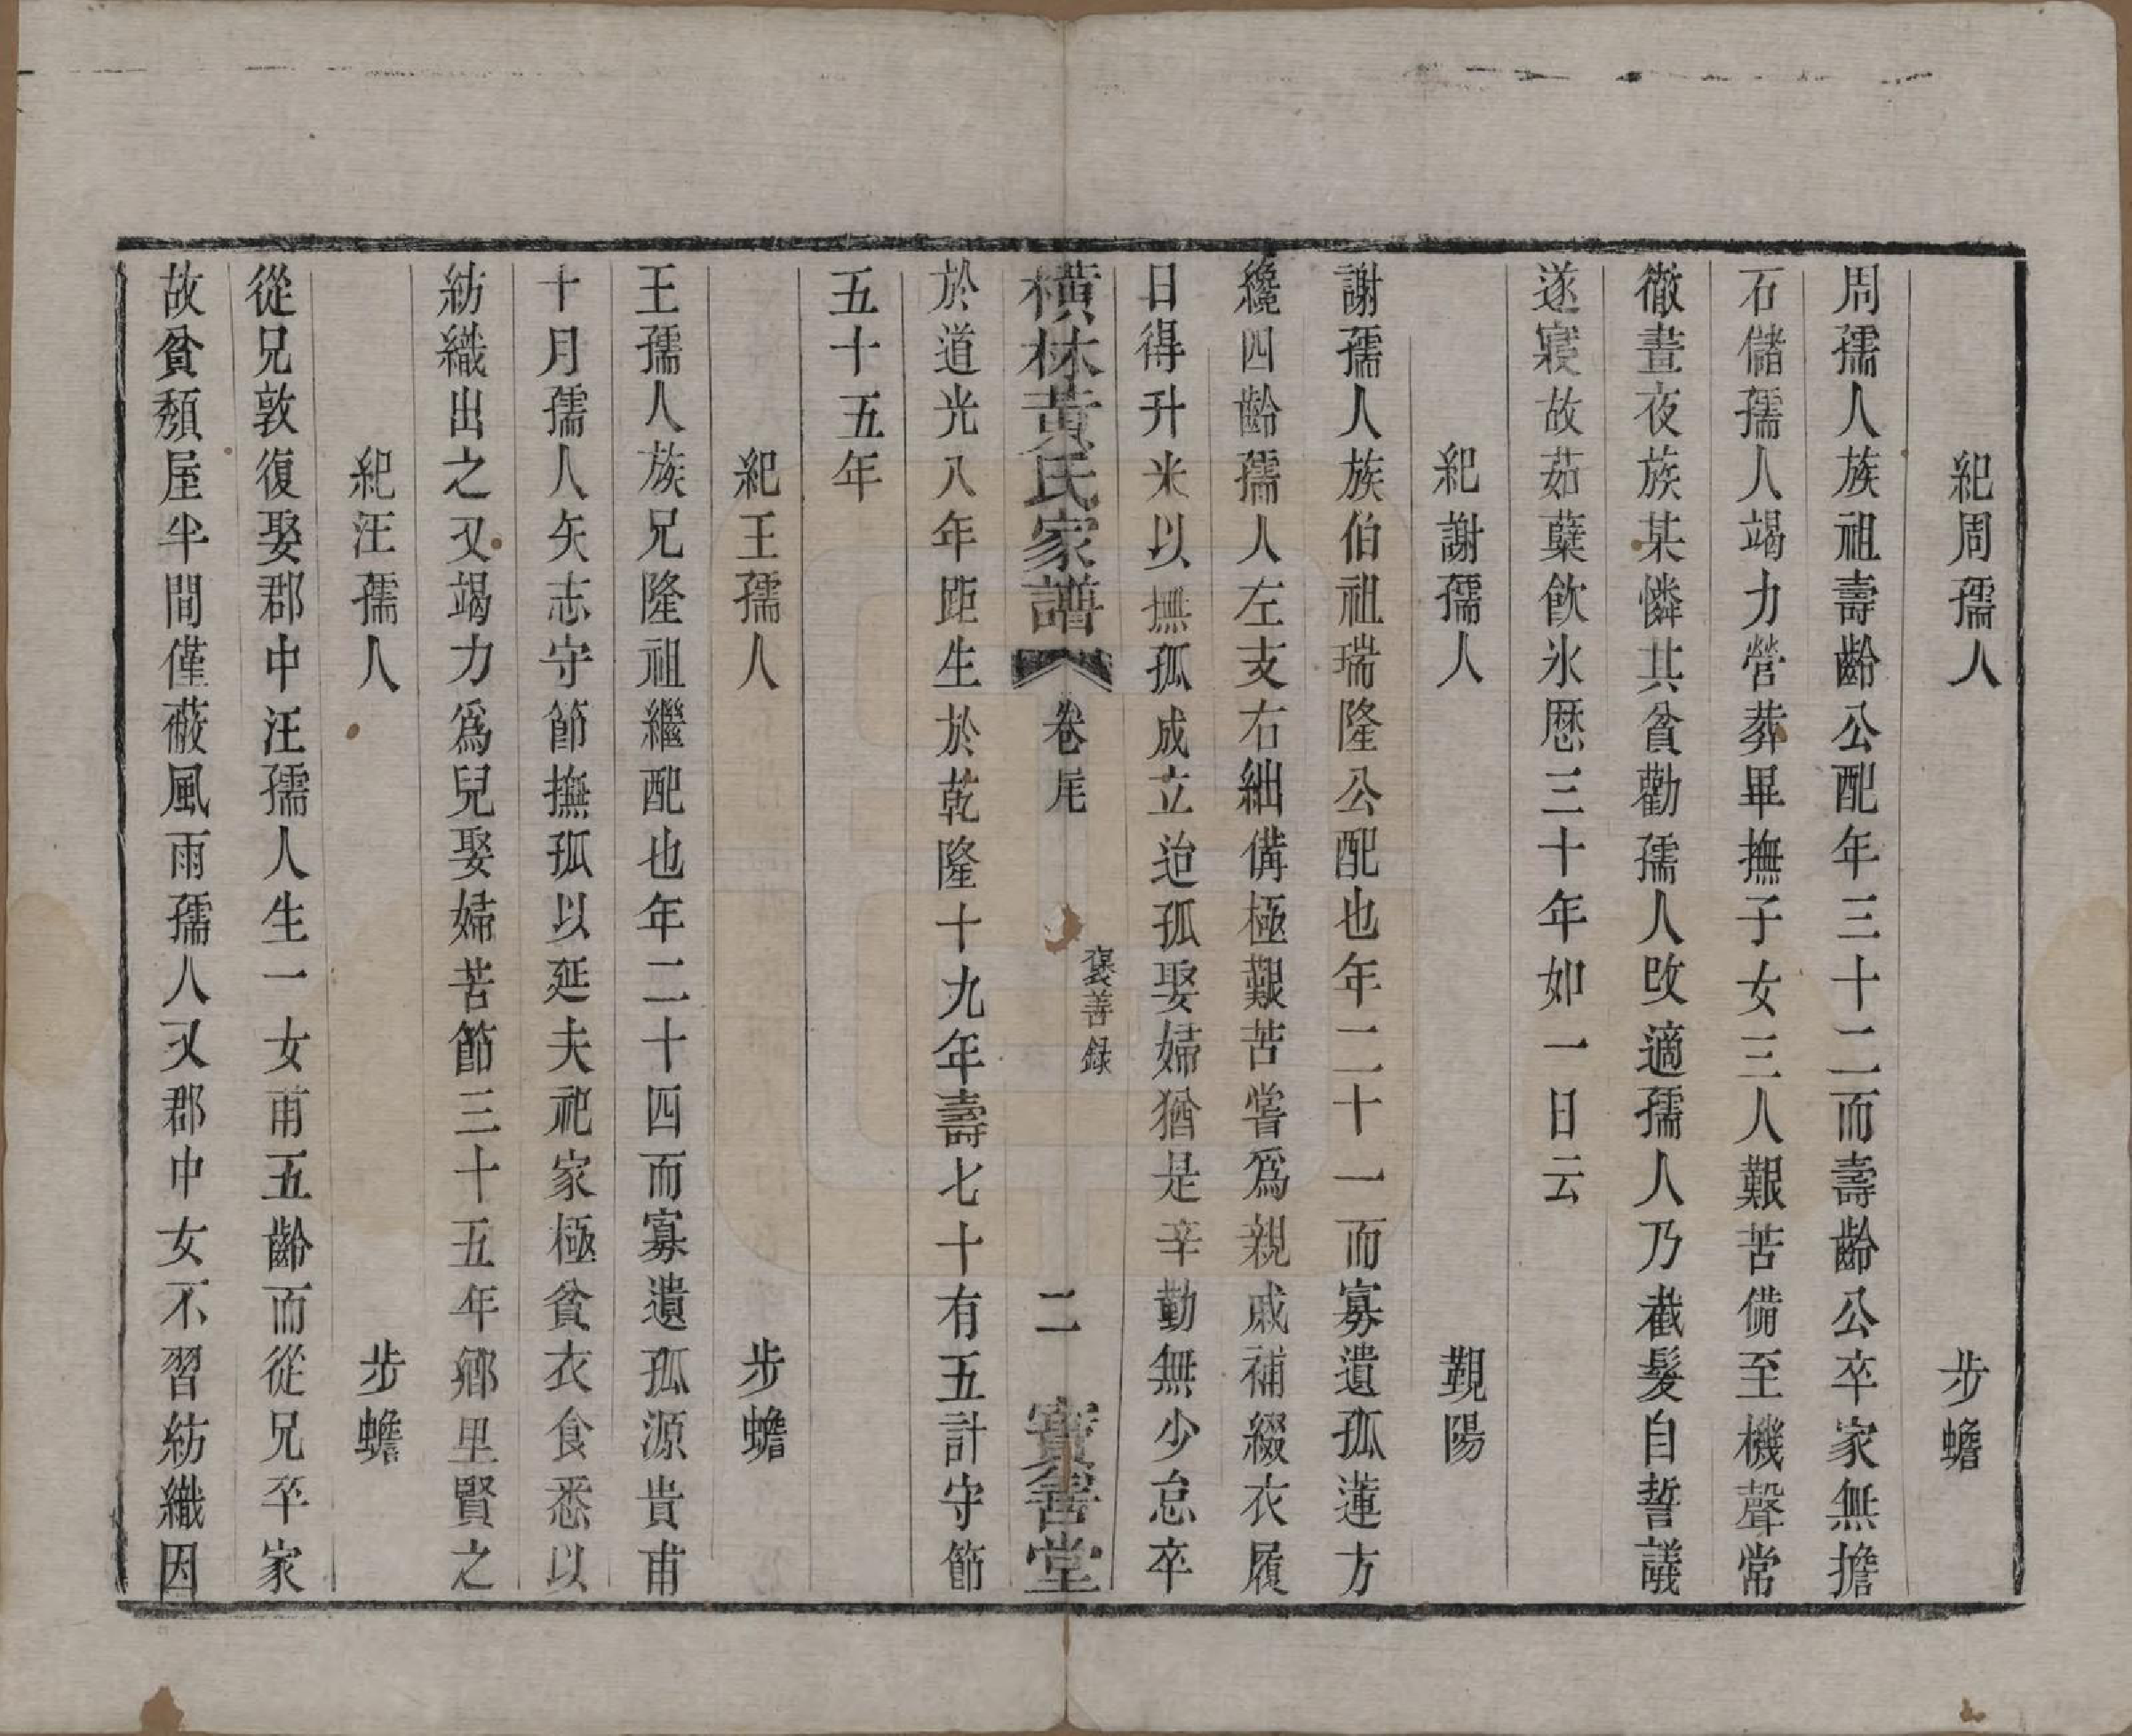 紀周孺人　步蟾
周孺人族祖壽齡公配年三十二而壽齡公卒家無擔
石儲孺人竭力營葬畢撫子女三人艱苦備至機聲常
徹晝夜族某憐其貧勸孺人改適孺人乃截髮自誓議
遂寢故茹蘗飲氷厯三十年如一日云
紀謝孺人　覲陽
謝孺人族伯祖瑞隆公配也年二十一而寡遺孤蓮方
纔四齡孺人左支右絀備極艱苦嘗爲親戚補綴衣履
日得升米以撫孤成立迨孤娶婦猶是辛勤無少怠卒
橫林黃氏家譜　卷尾　褒善録　二　寳善堂
於道光八年距生於乾隆十九年壽七十有五計守節
五十五年
紀王孺人　步蟾
王孺人族兄隆祖繼配也年二十四而寡遺孤源貴甫
十月孺人矢志守節撫孤以延夫祀家極貧衣食悉以
紡織出之又竭力爲兒娶婦苦節三十五年鄉里賢之
紀汪孺人　步蟾
從兄敦復娶郡中汪孺人生一女甫五齡而從兄卒家
故貧頽屋半間僅蔽風雨孺人又郡中女不習紡織因